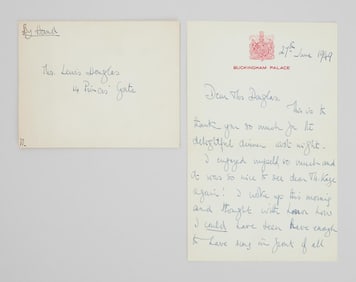 By Hand
Mrs. Lewis Douglas
14 Princes Gate
BUCKINGHAM PALACE
27th June 1949
Dear Mrs Douglas
This is to
thank you so much for the
delightful dinner last night.
I enjoyed myself so much and
it was so nice to see dear
again! I woke up this morning
and thought with horror how
I could have been brave enough
to have sung in front of all